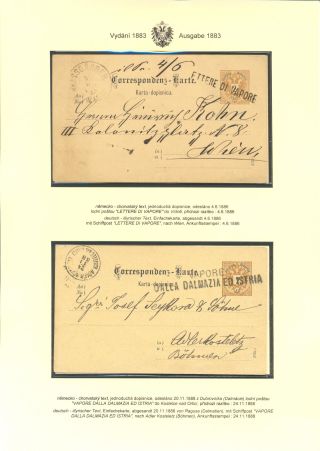 Vydání 1883 Ausgabe 1883
4/6
LETTERE DI VAPORE
Correspondenz-Karte.
Karta dopisnica.
Herrn Heinrich Kohn
III Kolonitzplatz N. 8
Wien
německo - chorvatský text, jednoduchá dopisnice, odesláno 4.6.1886
lodní poštou "LETTERE DI VAPORE" do Vídně, příchozí razítko : 4.6.1886
deutsch - illyrischer Text, Einfachekarte, abgesandt 4.6.1886
mit Schiffpost "LETTERE DI VAPORE", nach Wien, Ankunftstempel : 4.6.1886
Correspondenz-Karte.
Karta dopisnica.
VAPORE
DALLA DALMAZIA ED ISTRIA
Sigri Josef Seykora & Söhne
Adlerkosteletz
Böhmen
německo - chorvatský text, jednoduchá dopisnice, odesláno 20.11.1886 z Dubrovníka (Dalmácie) lodní poštou
"VAPORE DALLA DALMAZIA ED ISTRIA" do Kostelce nad Orlicí, příchozí razítko : 24.11.1886
deutsch - illyrischer Text, Einfachekarte, abgesandt 20.11.1886 von Ragusa (Dalmatien), mit Schiffpost "VAPORE
DALLA DALMAZIA ED ISTRIA", nach Adler Kosteletz (Böhmen), Ankunftstempel : 24.11.1886